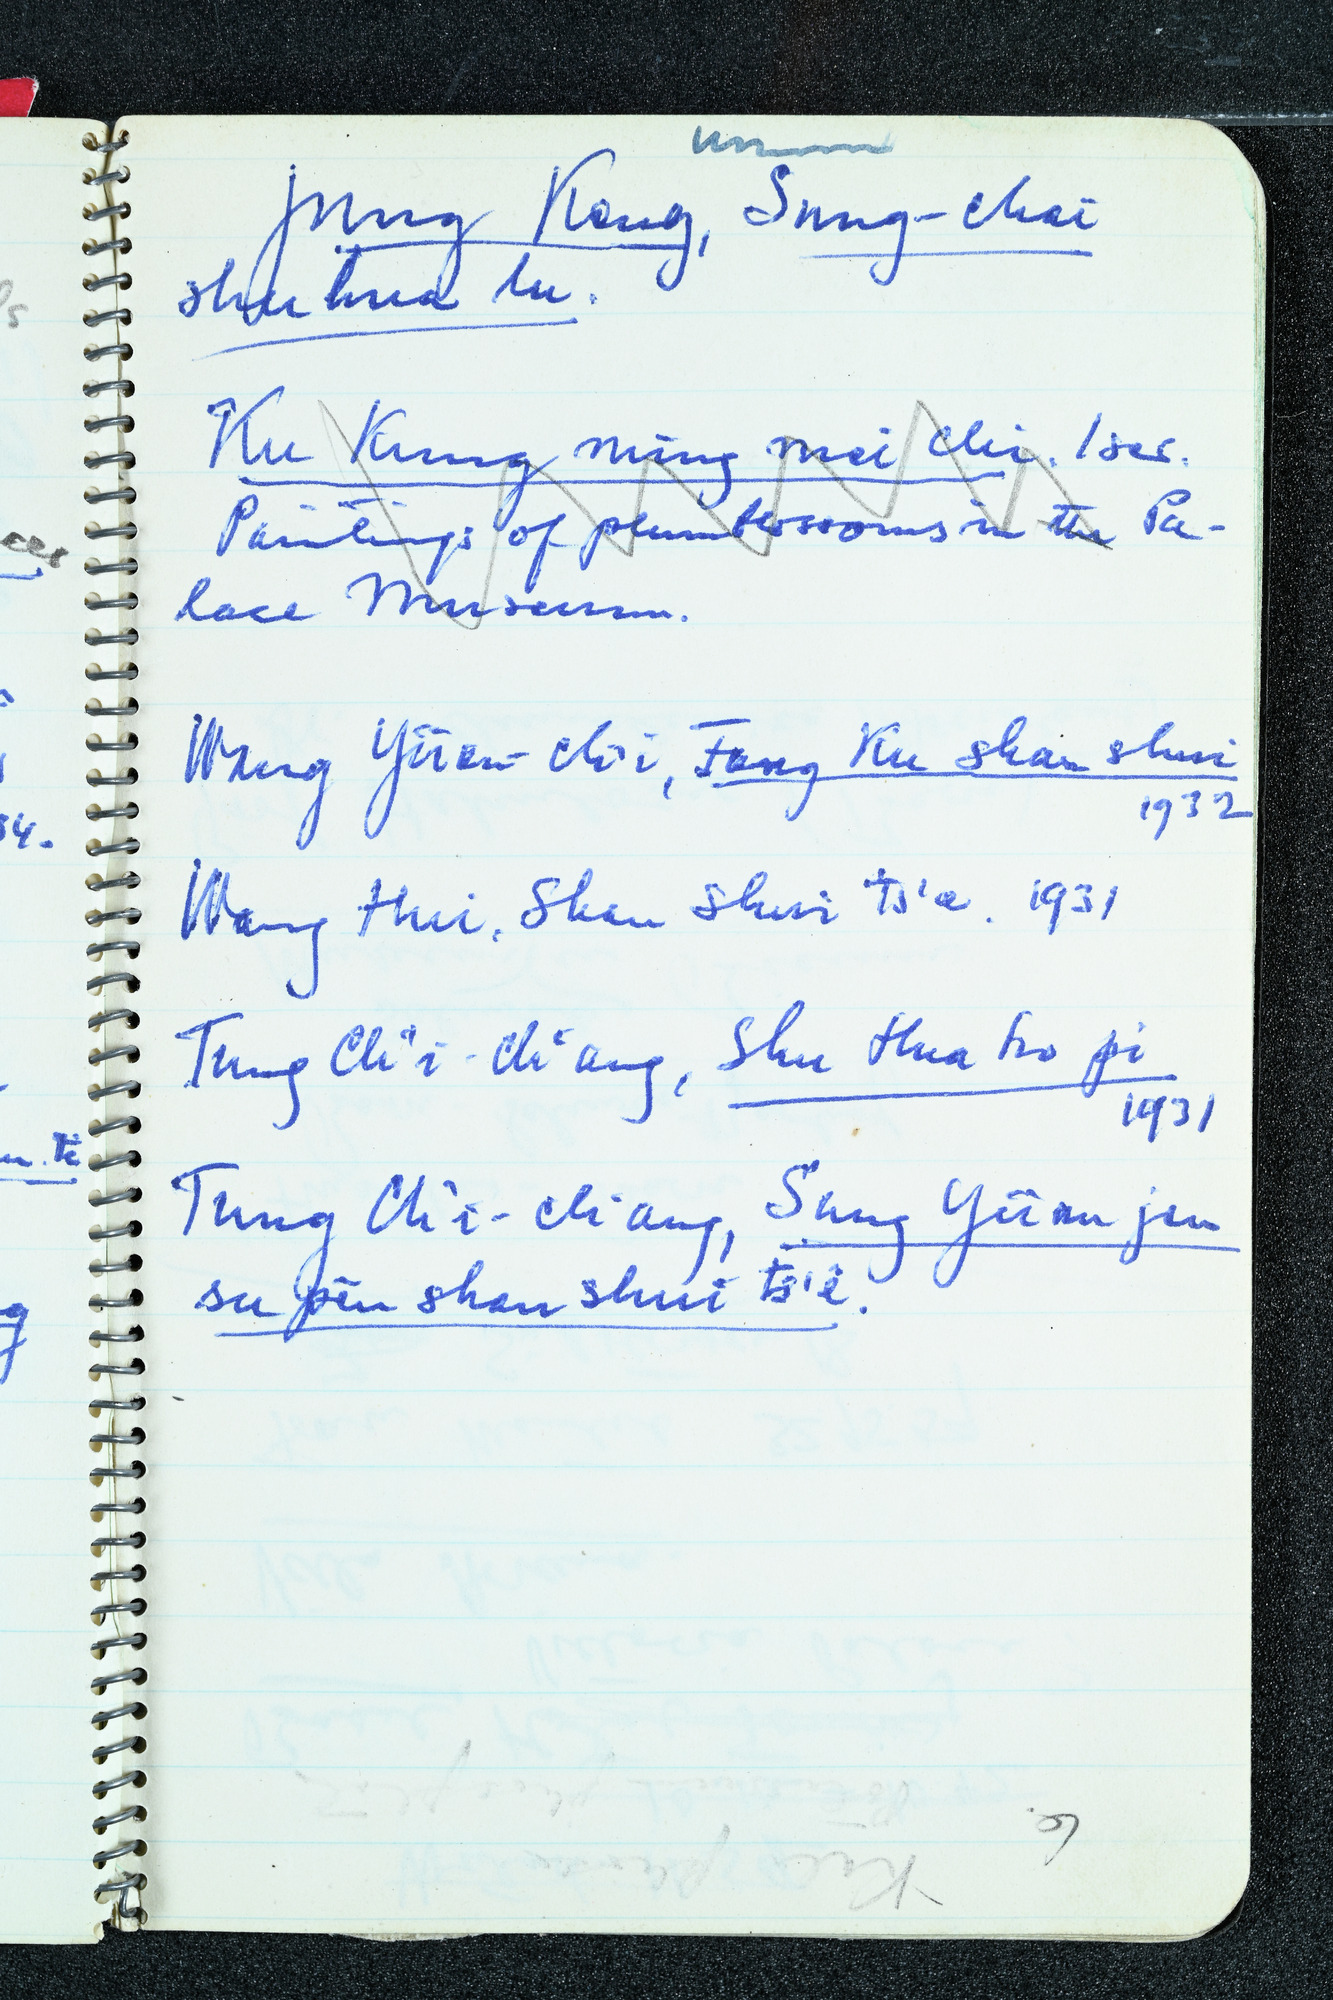 Jung Keng, Sung-chai
shu hua lu.
Ku Kung ming mei chi. 1 ser.
Paintings of plumblossoms in the Pa-
lace Museum.
Wang Yüan-ch'i, Fang Ku shan shui
1932
Wang Hui, Shan shui ts'e. 1931
Tung Ch'i-ch'ang, Shu Hua ho pi
1931
Tung Ch'i-ch'ang, Sung Yüan jen
su pên shan shui ts'ê.